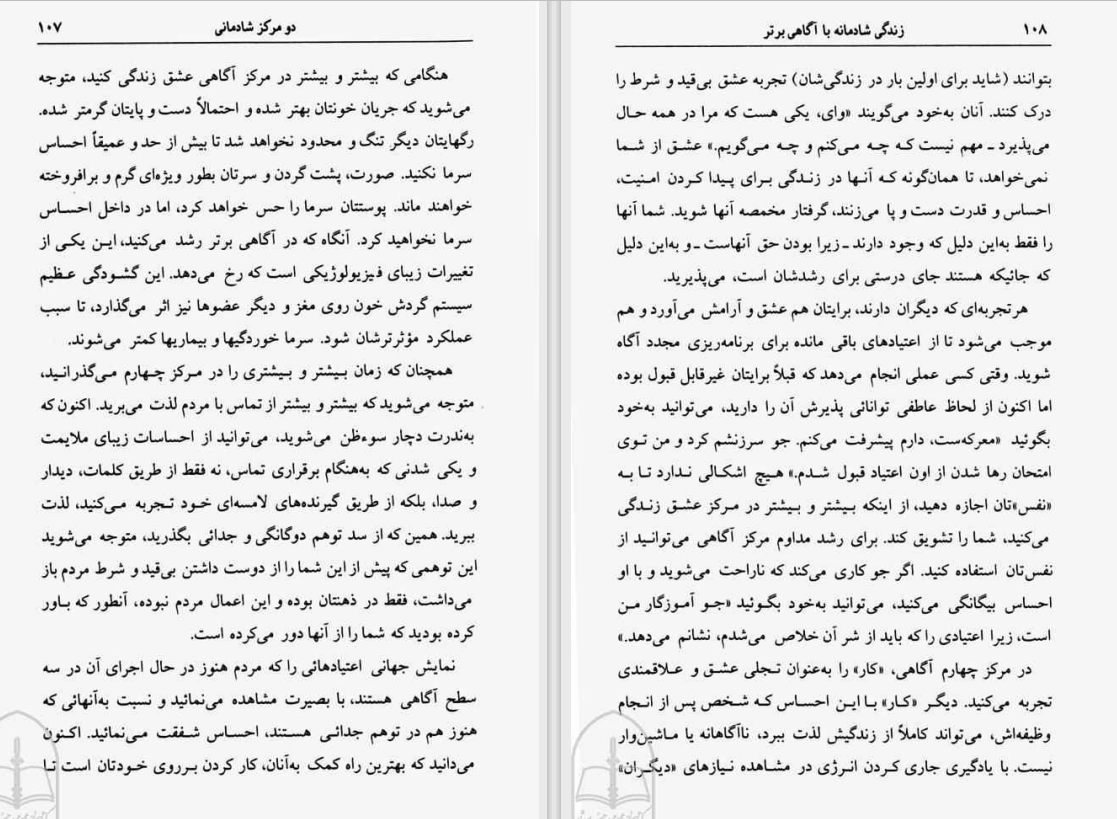 دو مرکز شادمانی ۱۰۷
هنگامی که بیشتر و بیشتر در مرکز آگاهی عشق زندگی کنید، متوجه
می‌شوید که جریان خونتان بهتر شده و احتمالاً دست و پایتان گرمتر شده.
رگهایتان دیگر تنگ و محدود نخواهد شد تا بیش از حد و عمیقاً احساس
سرما نکنید. صورت، پشت گردن و سرتان بطور ویژه‌ای گرم و برافروخته
خواهند ماند. پوستتان سرما را حس خواهد کرد، اما در داخل احساس
سرما نخواهید کرد. آنگاه که در آگاهی برتر رشد می‌کنید، این یکی از
تغییرات زیبای فیزیولوژیکی است که رخ می‌دهد. این گشودگی عظیم
سیستم گردش خون روی مغز و دیگر عضوها نیز اثر می‌گذارد، تا سبب
عملکرد مؤثرترشان شود. سرما خوردگیها و بیماریها کمتر می‌شوند.
همچنان که زمان بیشتر و بیشتری را در مرکز چهارم می‌گذرانید،
متوجه می‌شوید که بیشتر و بیشتر از تماس با مردم لذت می‌برید. اکنون که
به‌ندرت دچار سوءظن می‌شوید، می‌توانید از احساسات زیبای ملایمت
و یکی شدنی که به‌هنگام برقراری تماس، نه فقط از طریق کلمات، دیدار
و صدا، بلکه از طریق گیرنده‌های لامسه‌ای خود تجربه می‌کنید، لذت
ببرید. همین که از سد توهم دوگانگی و جدائی بگذرید، متوجه می‌شوید
این توهمی که پیش از این شما را از دوست داشتن بی‌قید و شرط مردم باز
می‌داشت، فقط در ذهنتان بوده و این اعمال مردم نبوده، آنطور که باور
کرده بودید که شما را از آنها دور می‌کرده است.
نمایش جهانی اعتیادهائی را که مردم هنوز در حال اجرای آن در سه
سطح آگاهی هستند، با بصیرت مشاهده می‌نمائید و نسبت به‌آنهائی که
هنوز هم در توهم جدائی هستند، احساس شفقت می‌نمائید. اکنون
می‌دانید که بهترین راه کمک به‌آنان، کار کردن برروی خودتان است تا
۱۰۸ زندگی شادمانه با آگاهی برتر
بتوانند (شاید برای اولین بار در زندگی‌شان) تجربه عشق بی‌قید و شرط را
درک کنند. آنان به‌خود می‌گویند «وای، یکی هست که مرا در همه حال
می‌پذیرد ـ مهم نیست که چه می‌کنم و چه می‌گویم.» عشق از شما
نمی‌خواهد، تا همان‌گونه که آنها در زندگی برای پیدا کردن امنیت،
احساس و قدرت دست و پا می‌زنند، گرفتار مخمصه آنها شوید. شما آنها
را فقط به‌این دلیل که وجود دارند ـ زیرا بودن حق آنهاست ـ و به‌این دلیل
که جائیکه هستند جای درستی برای رشدشان است، می‌پذیرید.
هر تجربه‌ای که دیگران دارند، برایتان هم عشق و آرامش می‌آورد و هم
موجب می‌شود تا از اعتیادهای باقی مانده برای برنامه‌ریزی مجدد آگاه
شوید. وقتی کسی عملی انجام می‌دهد که قبلاً برایتان غیرقابل قبول بوده
اما اکنون از لحاظ عاطفی توانائی پذیرش آن را دارید، می‌توانید به‌خود
بگوئید «معرکه‌ست، دارم پیشرفت می‌کنم. جو سرزنشم کرد و من توی
امتحان رها شدن از اون اعتیاد قبول شدم.» هیچ اشکالی ندارد تا به
«نفس»تان اجازه دهید، از اینکه بیشتر و بیشتر در مرکز عشق زندگی
می‌کنید، شما را تشویق کند. برای رشد مداوم مرکز آگاهی می‌توانید از
نفس‌تان استفاده کنید. اگر جو کاری می‌کند که ناراحت می‌شوید و با او
احساس بیگانگی می‌کنید، می‌توانید به‌خود بگوئید «جو آموزگار من
است، زیرا اعتیادی را که باید از شر آن خلاص می‌شدم، نشانم می‌دهد.»
در مرکز چهارم آگاهی، «کار» را به‌عنوان تجلی عشق و علاقمندی
تجربه می‌کنید. دیگر «کار» با این احساس که شخص پس از انجام
وظیفه‌اش، می‌تواند کاملاً از زندگیش لذت ببرد، ناآگاهانه یا ماشین‌وار
نیست. با یادگیری جاری کردن انرژی در مشاهده نیازهای «دیگران»